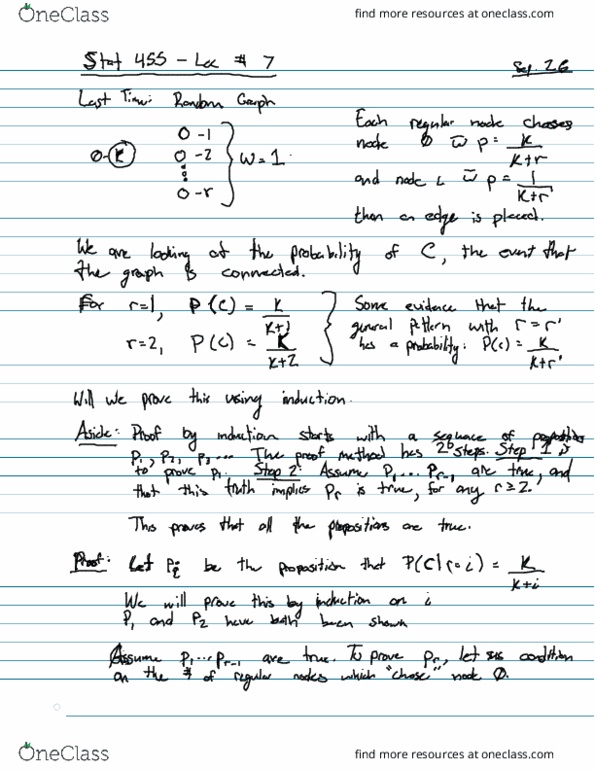 OneClass
find more resources at oneclass.com
Stat 455 - Lec # 7
Sep. 26
Last Time: Random Graph
Each regular node choses
node 0 w p = k/(k+r)
and node i w p = 1/(k+r)
then an edge is placed.
0-(k)
0 -1
0 -2
0 -r
w=1
We are looking at the probability of C, the event that
the graph is connected.
For r=1, P(C) = k/(k+1)
r=2, P(C) = k/(k+2)
Some evidence that the
general pattern with r=r'
has a probability: P(C) = k/(k+r')
Will we prove this using induction.
Aside: Proof by induction starts with a sequence of propositions
P1, P2, P3... The proof method has 2 steps. Step 1 is
to prove P1. Step 2: Assume P1...Pr-1, are true, and
that this truth implies Pr is true, for any r≥2.
This proves that all the propositions are true.
Proof: Let Pi be the proposition that P(C|r=i) = k/(k+i)
We will prove this by induction on i
P1 and P2 have both been shown
Assume P1...Pr-1 are true. To prove Pr, let us condition
on the # of regular nodes which "chose" node 0.
OneClass
find more resources at oneclass.com